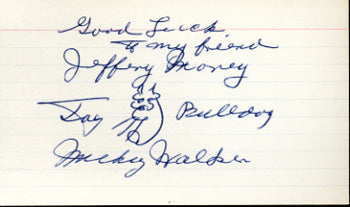 Good Luck
to my friend
Jeffery Money
Toy Bulldog
Mickey Walker